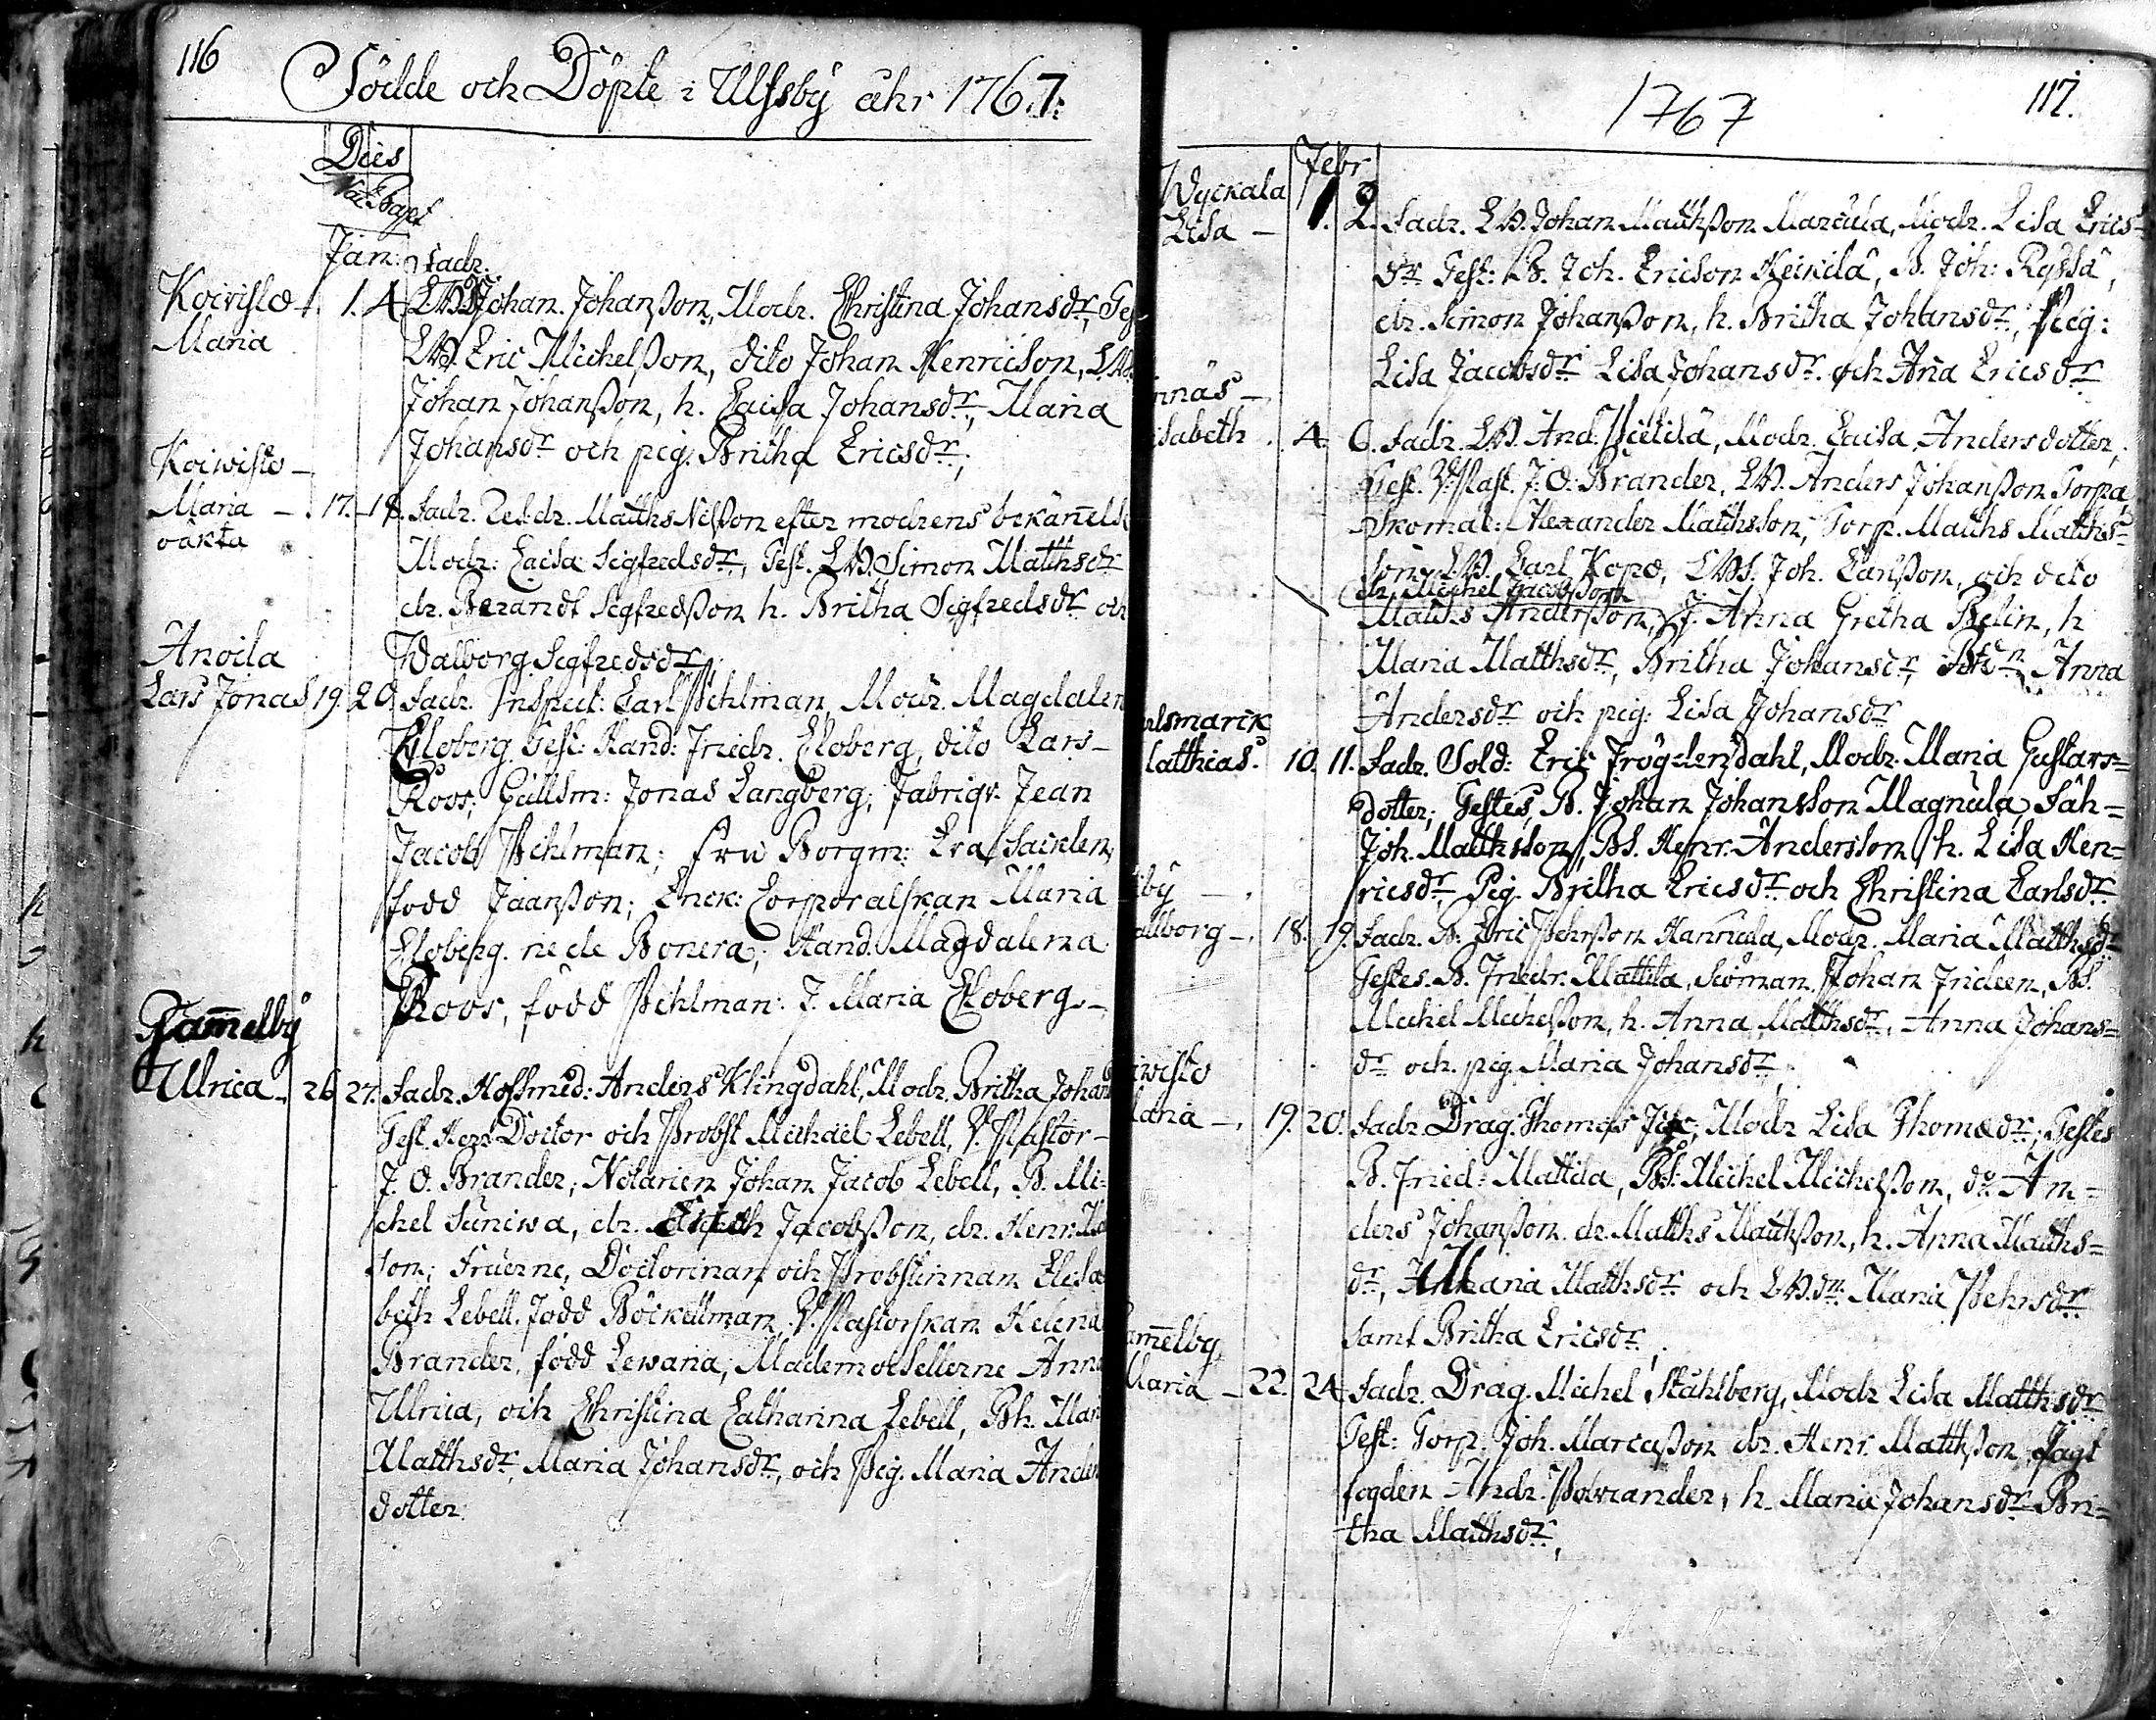 116
Födde och Döpte i Ulfsby åhr 1767:
Dies
Nat. Bapt
Jan: Fadr.
Koivisto 1. 4. LB. Johan Johanßon, Modr. Christina Johansdr, Test
Maria LB. Eric Michelßon, dito Johan Henricson, LB.
Johan Johanßon, h. Caisa Johansdr, Maria
Johansdr och pig. Britha Ericsdr,
Koivisto –
Maria – 17. 18. Fadr. Matths Nilßon efter modrens bekänelse
oäkta Modr: Caisa Sigfredsdr, Test. LB. Simon Matthsdr
dr. Berandt Sigfredßon h. Britha Sigfredsdr och
Walborg Sigfredsdr
Anoila
Lars Jonas 19. 20. Fadr. Inspect: Carl Pihlman, Modr. Magdalen
Ekoberg Test: Hand: Friedr. Ekoberg, dito Lars
Roos; Gullsm: Jonas Langberg; Fabriqv. Jean
Jacob Pihlman; Fru Borgm: Eva
född Jaanßon; Enck: Corporalskan Maria
Ekoberg. nede Bonera; Hand. Magdalena
Roos, född Pihlman: J. Maria Ekoberg –
Gam̄elby
Ulrica – 26 27. Fadr. Hofsmed: Anders Klingdahl, Modr. Britha Johans
Test. Herr Doctor och Probst Michael Lebell, V. Pastor
J. O. Brander; Notarien Johan Jacob Lebell, B. Mi-
chel Suniwa, dr. Jacobßon, dr. Henr.
son; Fruerne, Doctorinan och Probstinnan Elisa
beth Lebell. född Böckellman, V. Pastorskan Helena
Brander, född Lewana; Mademoisellerne Anna
Ulrica, och Christina Catharina Lebell, Bh. Mar
Matthsdr, Maria Johansdr, och Pig. Maria Anders
dotter
117.
1767
Febr
Wyckala
Lisa – 1. 2. Fadr. LB. Johan Matthßon Marcula, Modr. Lisa Erics-
dr Test: B. Joh. Ericson Heickilä, B. Joh: Ryssä,
dr. Simon Johanßon, h. Britha Johansdr, Pig:
Lisa Jacobsdr Lisa Johansdr. och Ana Ericsdr
nnäs –
isabeth 4. 6. Fadr. LB. And. Pietilä, Modr. Caisa Andersdotter,
Test. V. Past. J. O. Brander, LB. Anders Johanßon Torpa,
Skomak: Alexander Matthsson, Torp. Matths Matths-
son, LB. Carl Kopo, LBS. Joh. Carlßon, och dito
dr. Michel Jacobßon
Matths Anderßon, J. Anna Gretha Belin, h
Maria Matthsdr, Britha Johansdr, Anna
Andersdr och pig: Lisa Johansdr
alsmarck
Matthias. 10. 11. Fadr. Sold: Eric Frögdendahl, Modr. Maria Gustavs=
dotter; Testes, B. Johan Johansson Magnula,
Joh. Matthsson, BS. Henr. Andersson, h. Lisa Hen=
ricsdr, Pig. Britha Ericsdr och Christina Carlsdr
by –
allborg – 18. 19. Fadr. B. Eric Pehrßon Hannula, Modr. Maria Matthsdr
Testes. B. Friedr. Mattila, Siöman Johan Frideen, BS.
Michel Michelßon, h. Anna Matthsdr, Anna Johans=
dr och pig. Maria Johansdr,
ivisto
Maria – 19. 20. Fadr. Drag. Thomas, Modr Lisa Thomædr; Testes
B. Fried: Mattila, BS. Michel Michelßon, do An=
ders Johanßon. dr. Matths Matthßon, h. Anna Matths=
dr, Maria Matthsdr och LB.dr. Maria Pehrsdr
samt Britha Ericsdr,
am̄elby
Maria – 22. 24. Fadr. Drag. Michel Ståhlberg, Modr Lisa Matthsdr
Test: Torp: Joh. Marcußon dr. Henr. Matthßon, Jagt
fogden Andr. Polviander, h. Maria Johansdr Bri=
tha Matthsdr,